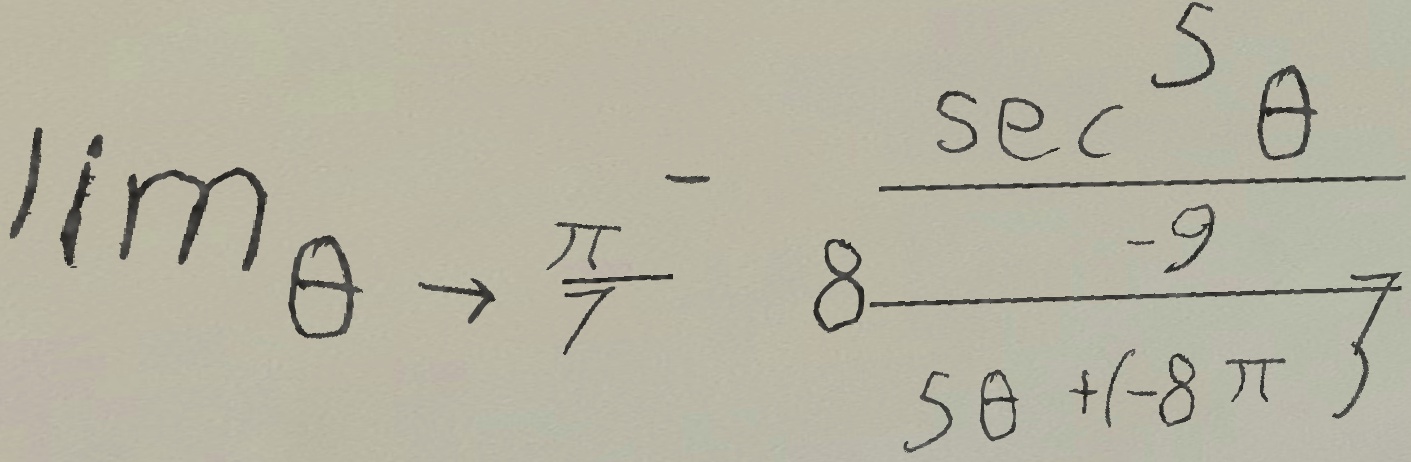 \lim_{\theta \to \frac{\pi}{7}^{-}} \frac{\sec^{5} \theta}{8 \frac{-9}{5\theta + (-8\pi)^{7}}}